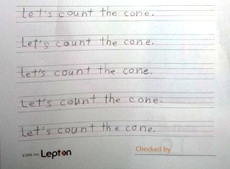 Let's count the cone.
Let's count the cone.
Let's count the cone.
Let's count the cone.
Let's count the cone.
Lepton
Checked by